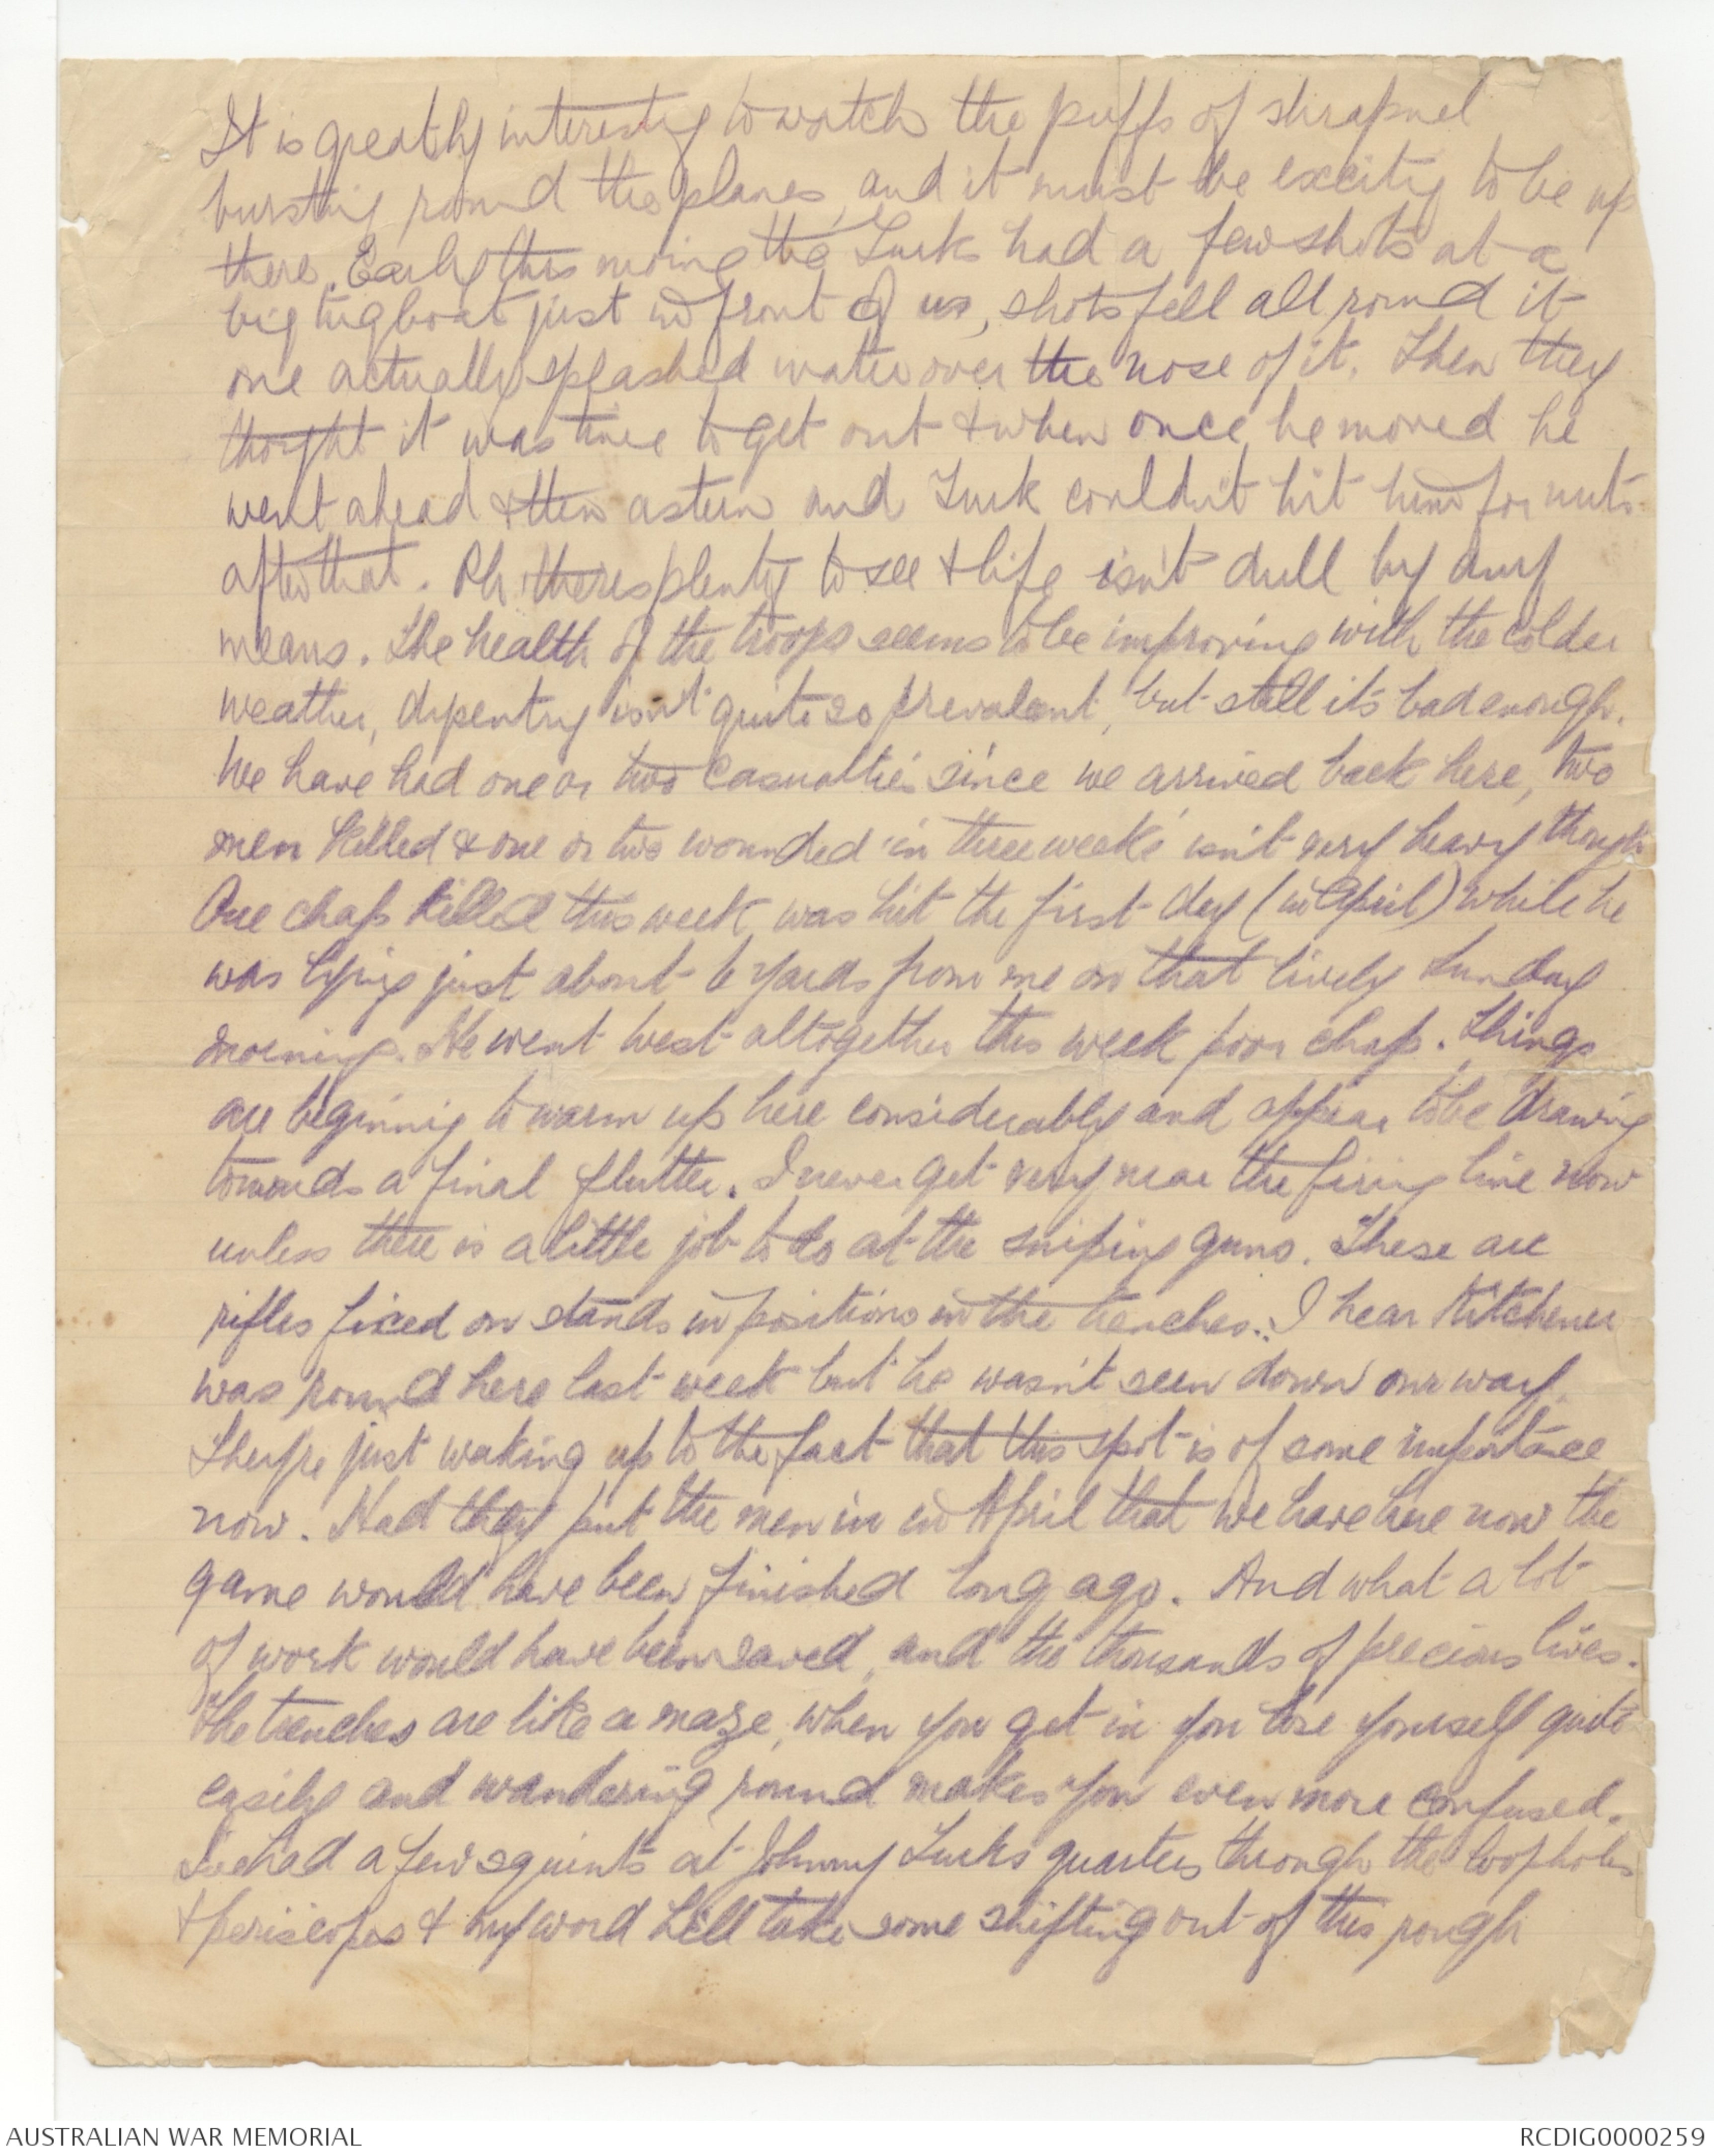 It is greatly interesting to watch the puffs of shrapnel
bursting round the planes, and it must be exciting to be up
there. Early this morning the Turks had a few shots at a
big tugboat just in front of us, shots fell all round it
one actually splashed water over the nose of it. Then they
thought it was time to get out & when once he moved he
went ahead & then astern and Turk couldn't hit him for nuts
after that. Oh theres plenty to see & life isn't dull by any
means. The health of the troops seems to be improving with the colder
weather, dysentry isn't quite so prevalent, but still its bad enough.
We have had one or two casualties since we arrived back here, two
men killed & one or two wounded in three weeks isn't very heavy though
One chap killed this week was hit the first day (in April) while he
was lying just about 6 yards from me on that lively Sunday
morning. He went west altogether this week poor chap. Things
are beginning to warm up here considerably and appear to be drawing
towards a final flutter. I never get very near the firing line now
unless there is a little job to do at the sniping guns. These are
rifles fixed on stands in positions in the trenches. I hear Kitchener
was round here last week but he wasn't seen down our way.
They're just waking up to the fact that this spot is of some importance
now. Had they put the men in in April that we have here now the
game would have been finished long ago. And what a lot
of work would have been saved, and the thousands of precious lives.
The trenches are like a maze, when you get in you lose yourself quite
easily and wandering round makes you even more confused.
I've had a few squints at Johnny Turks quarters through the loopholes
& periscopes & my word he'll take some shifting out of this rough
AUSTRALIAN WAR MEMORIAL
RCDIG0000259